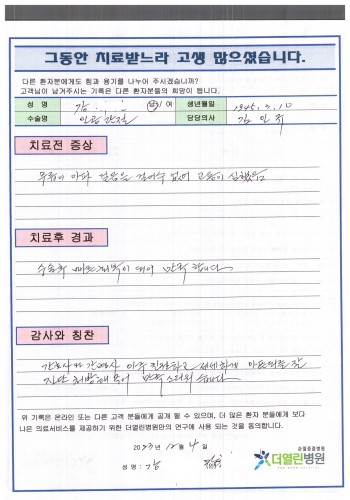 그동안 치료받느라 고생 많으셨습니다.
다른 환자분에게도 힘과 용기를 나누어 주시겠습니까?
고객님이 남겨주시는 기록은 다른 환자분들의 희망이 됩니다.
성 명 김 남/여 생년월일 1945.3.10
수술명 인공관절 담당의사 김
치료전 증상
무릎이 아파 걸음을 걸어 수 없어 고통이 심했음
치료후 경과
수술후 만족 합니다
감사와 칭찬
간호사 와 간병사 아주 친절하고 세세하게
만족스러워 습니다
위 기록은 온라인 또는 다른 고객 분들에게 공개 될 수 있으며, 더 많은 환자 분들에게 보다
나은 의료서비스를 제공하기 위한 더열린병원만의 연구에 사용 되는 것을 동의합니다.
2023년 12월 4일
성 명 : 김
관절종합병원
더열린병원